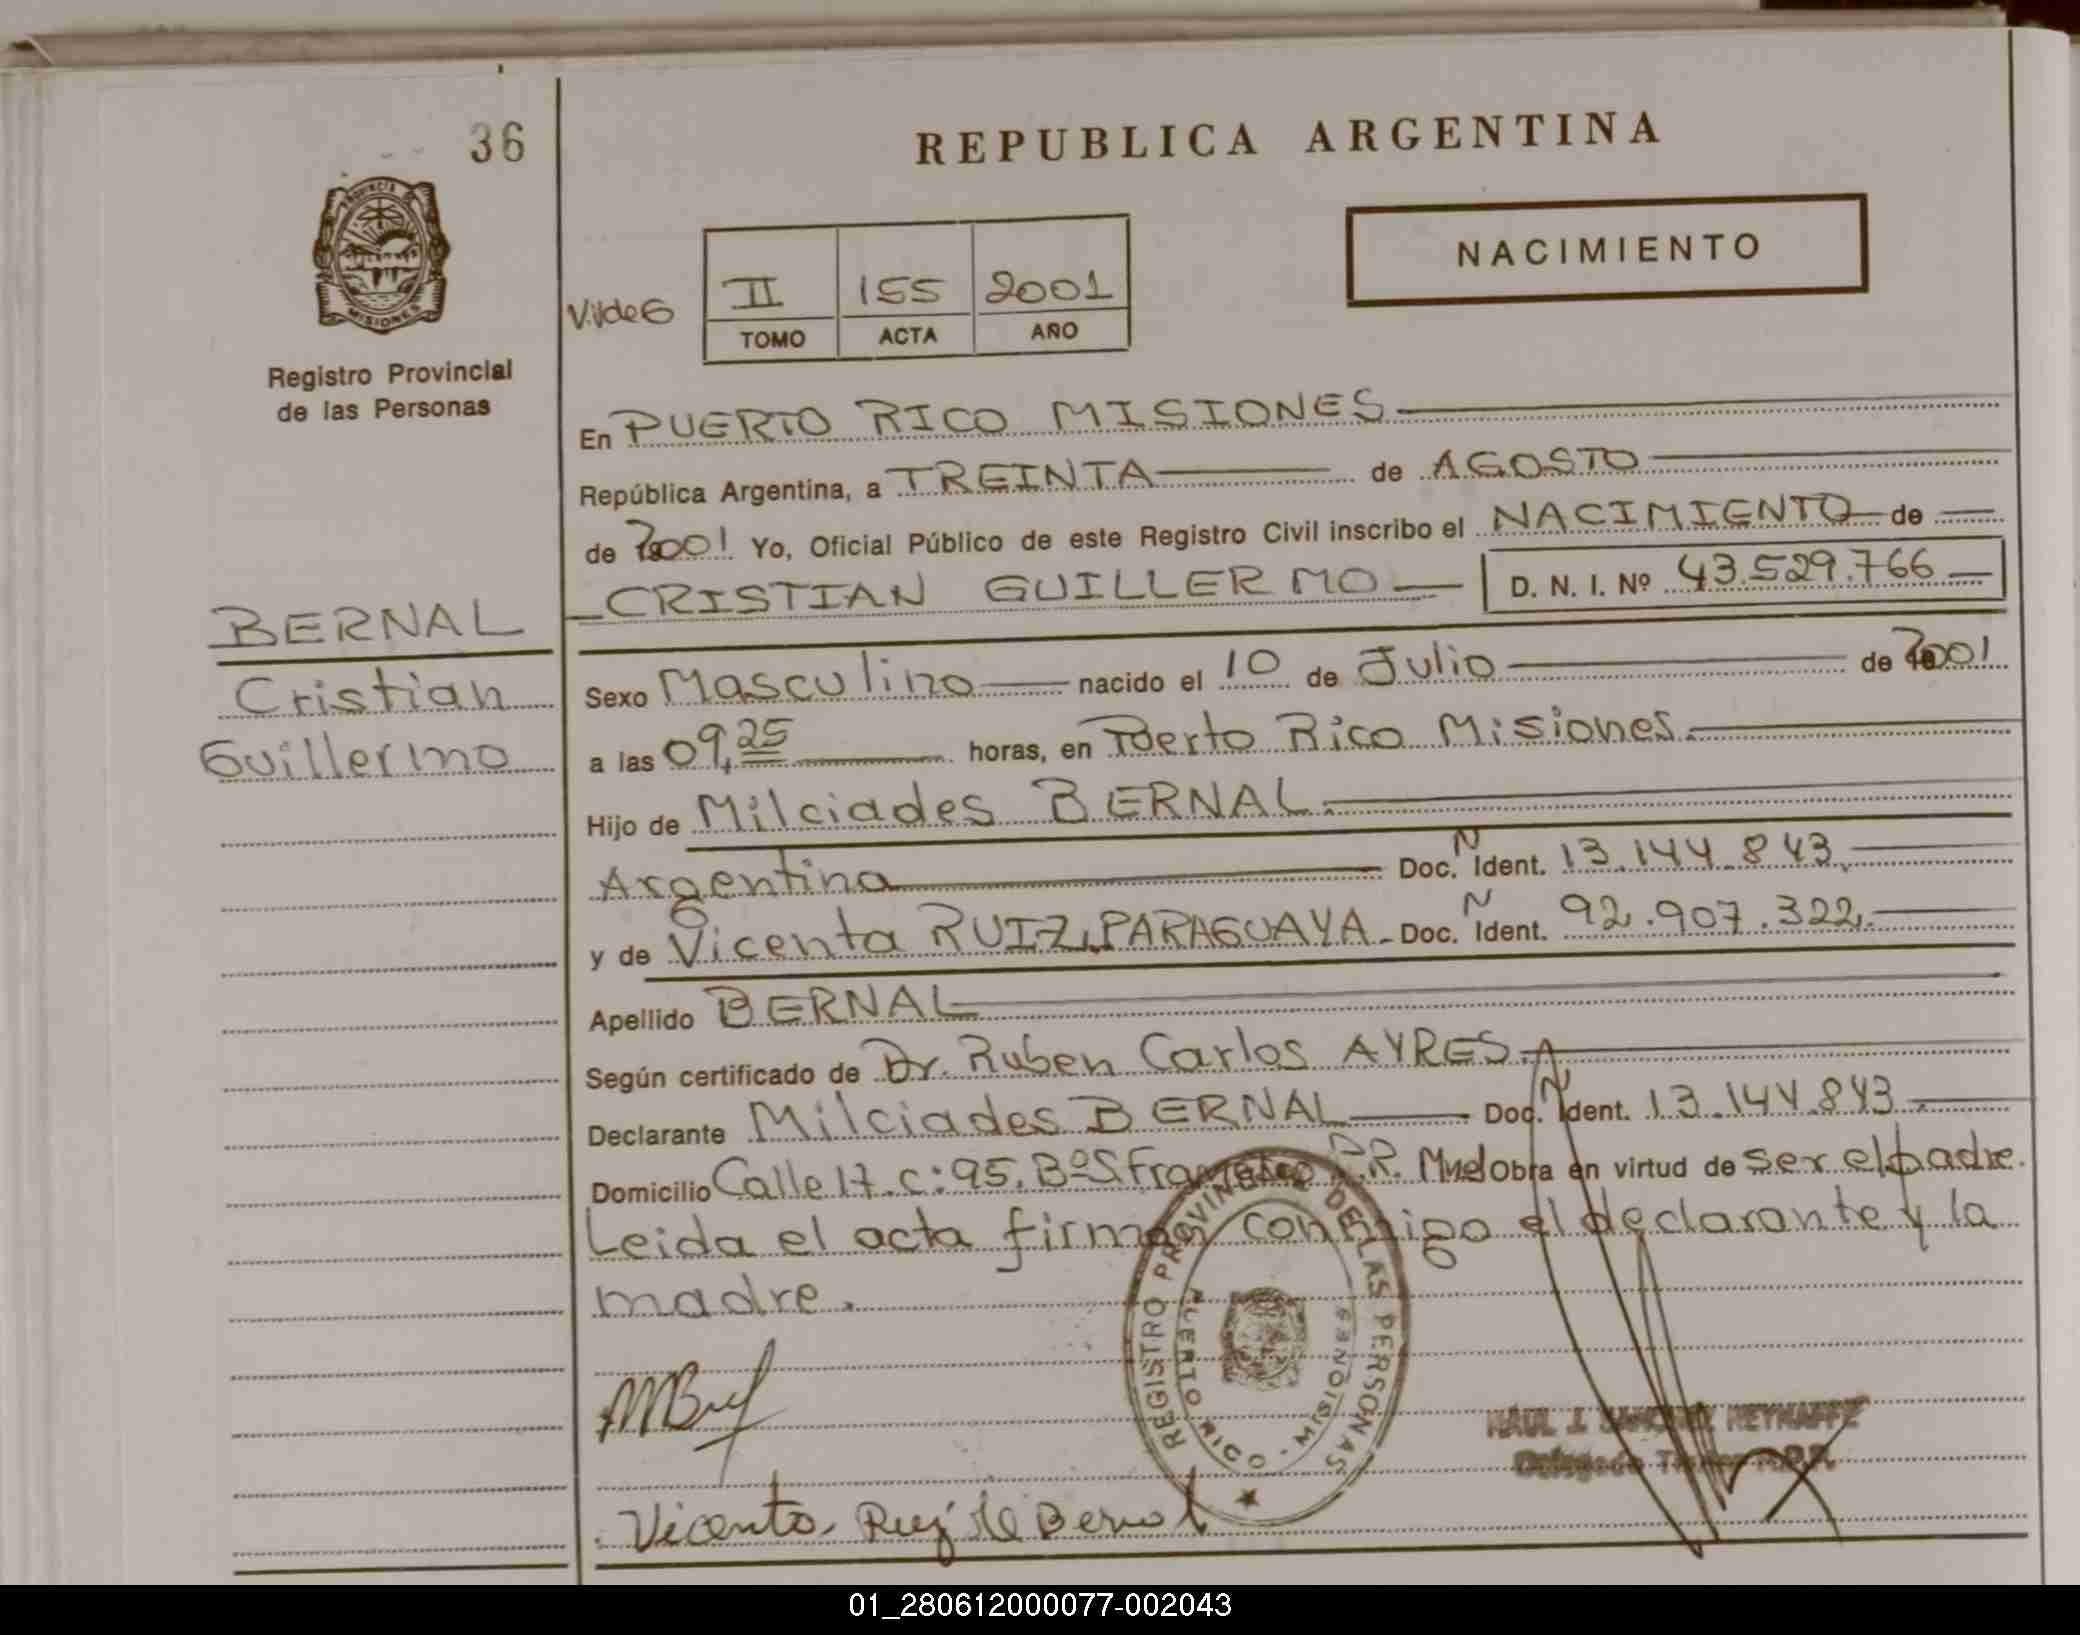 36
REPUBLICA ARGENTINA
PROVINCIA
MISIONES
NACIMIENTO
II 155 2001
TOMO ACTA AÑO
Registro Provincial
de las Personas
En PUERTO RICO MISIONES
República Argentina, a TREINTA de AGOSTO
de 2001 Yo, Oficial Público de este Registro Civil inscribo el NACIMIENTO de
CRISTIAN GUILLERMO D. N. I. Nº 43.529.766
BERNAL
Cristian
Guillermo
Sexo Masculino nacido el 10 de Julio de 2001
a las 09,25 horas, en Puerto Rico Misiones.
Hijo de Milciades BERNAL.
Argentina Doc. N Ident. 13.144.843.
y de Vicenta RUIZ, PARAGUAYA. Doc. N Ident. 92.907.322.
Apellido BERNAL
Según certificado de Dr. Ruben Carlos AYRES.
Declarante Milciades BERNAL Doc. N Ident. 13.144.843.
Domicilio Calle 17.c:95.BºS.Francisco P.R. Mnes Obra en virtud de ser el padre.
Leida el acta firman conmigo el declarante y la
madre.
REGISTRO PROVINCIAL DE LAS PERSONAS
PUERTO RICO - MISIONES
MBnl
RAUL J. SANCHEZ REYNAFFE
Delegado Titular R.P.P.
Vicenta Ruiz de Bernal
01_280612000077-002043